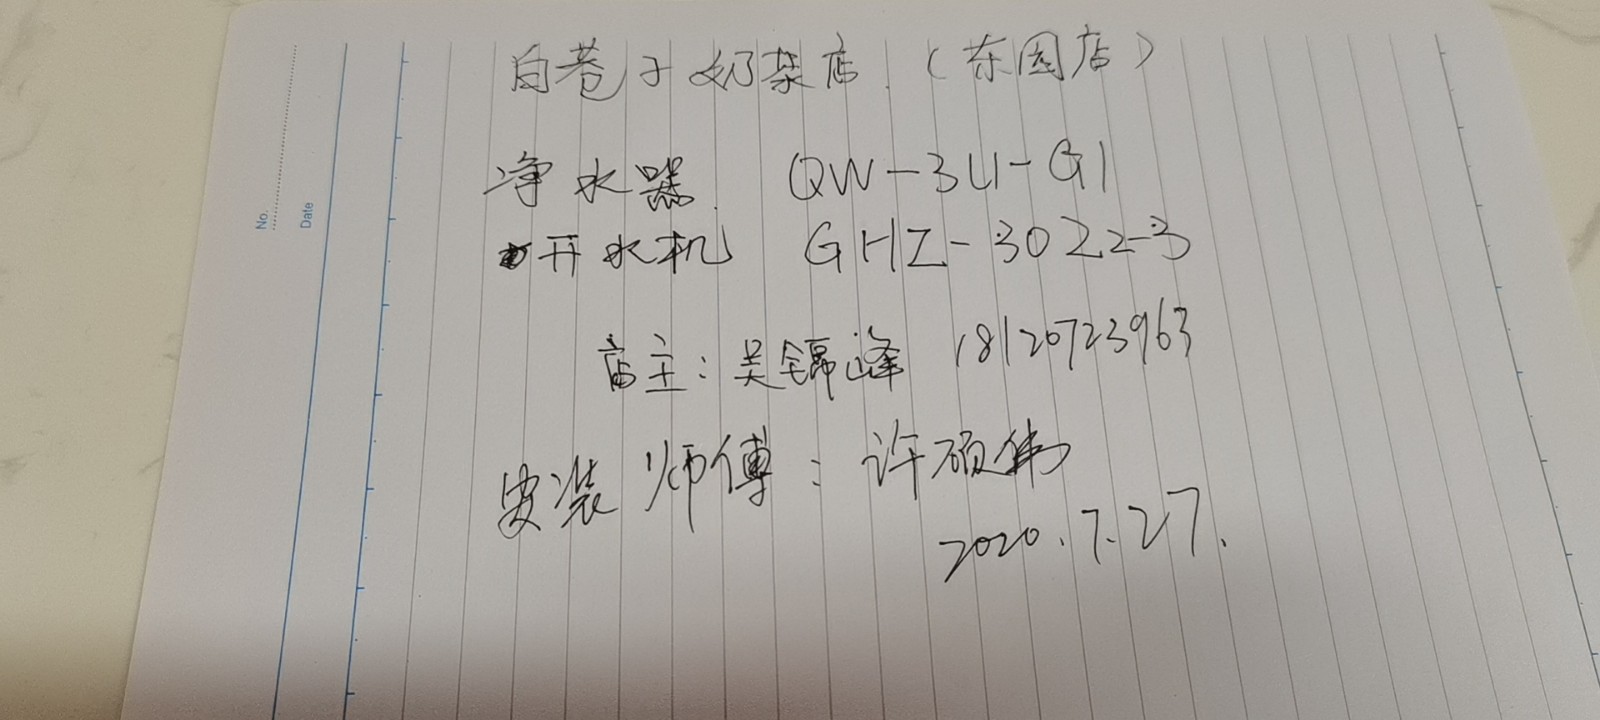 白巷子奶茶店（东园店）
净水器 QW-3U-G1
开水机 GHZ-3022-3
店主：吴锦峰 18120723963
安装师傅：许硕伟
2020.7.27.
No.
Date